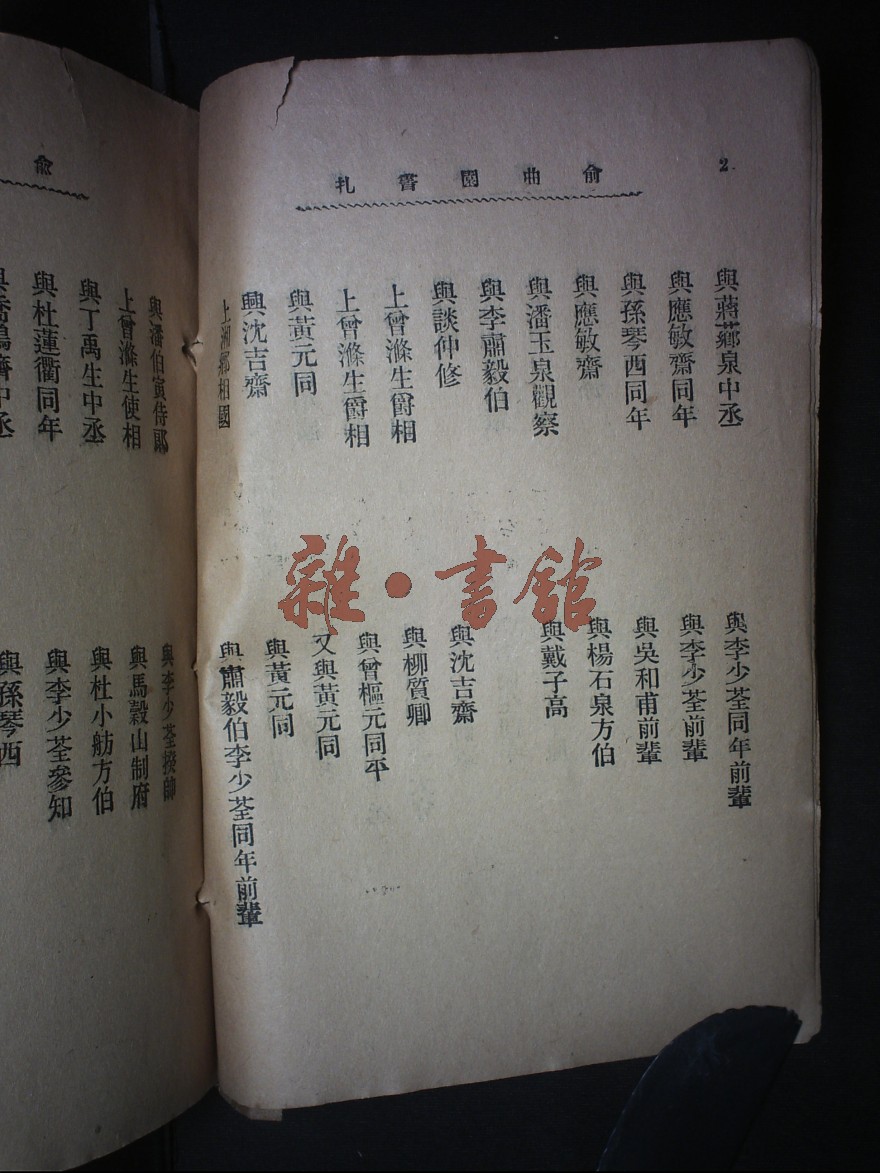 2
俞曲園書札
與蔣薌泉中丞
與應敏齋同年
與孫琴西同年
與應敏齋
與潘玉泉觀察
與李肅毅伯
與談仲修
上曾滌生爵相
上曾滌生爵相
與黃元同
與沈吉齋
上湘鄉相國
與李少荃同年前輩
與李少荃前輩
與吳和甫前輩
與楊石泉方伯
與戴子高
與沈吉齋
與柳質卿
與曾樞元同年
又與黃元同
與黃元同
與肅毅伯李少荃同年前輩
雜·書館
俞
與潘伯寅侍郎
上曾滌生使相
與丁禹生中丞
與杜蓮衢同年
中丞
與李少荃揆帥
與馬穀山制府
與杜小舫方伯
與李少荃參知
與孫琴西